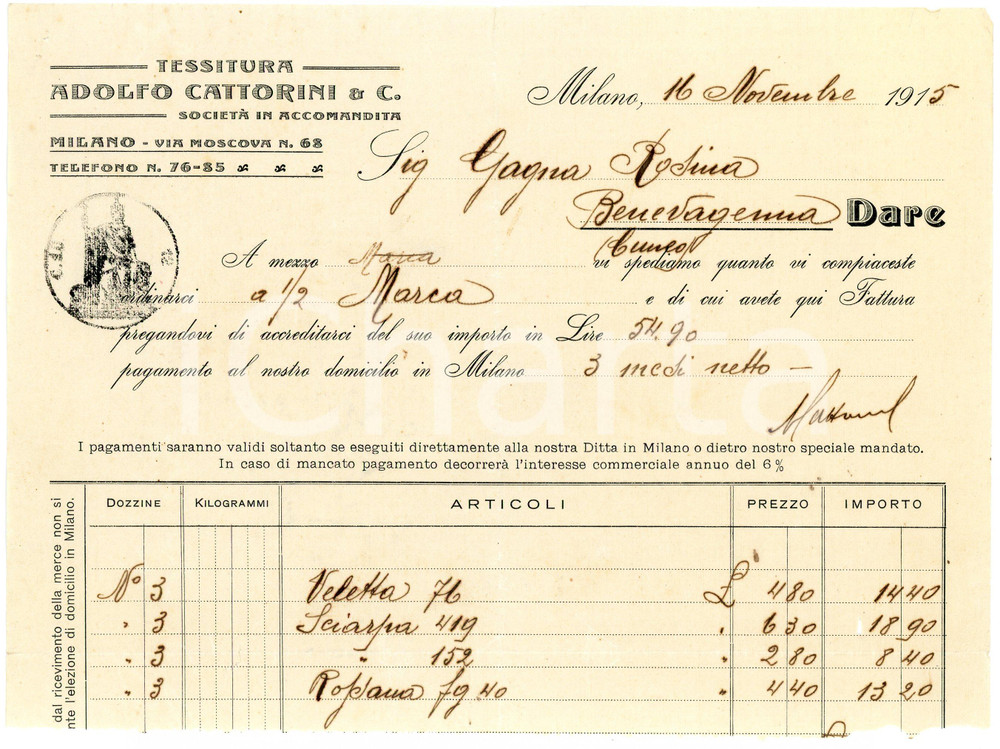 TESSITURA
ADOLFO CATTORINI & C.
SOCIETÀ IN ACCOMANDITA
MILANO - VIA MOSCOVA N. 68
TELEFONO N. 76-85
Milano, 16 Novembre 1915
Sig Gagna Rosina
Benevagenna Dare
Cuneo
A mezzo vi spediamo quanto vi compiaceste
ordinarci a 1/2 Marca e di cui avete qui Fattura
pregandovi di accreditarci del suo importo in Lire 54.90
pagamento al nostro domicilio in Milano 3 mesi netto —
I pagamenti saranno validi soltanto se eseguiti direttamente alla nostra Ditta in Milano o dietro nostro speciale mandato.
In caso di mancato pagamento decorrerà l'interesse commerciale annuo del 6 %
DOZZINE KILOGRAMMI ARTICOLI PREZZO IMPORTO
N° 3 Veletta 76 £ 4 80 14 40
" 3 Sciarpa 419 " 6 30 18 90
" 3 " 152 " 2 80 8 40
" 3 fg 40 " 4 40 13 20
dal ricevimento della merce non si
nte l'elezione di domicilio in Milano.
iCharta